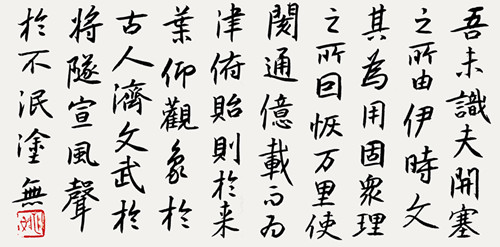 吾未識夫開塞
之所由伊時文
其為用固眾理
之所回恢万里使
閡通億載而为
津俯貽則於来
葉仰觀象於
古人濟文武於
將隧宣風聲
於不泯塗無